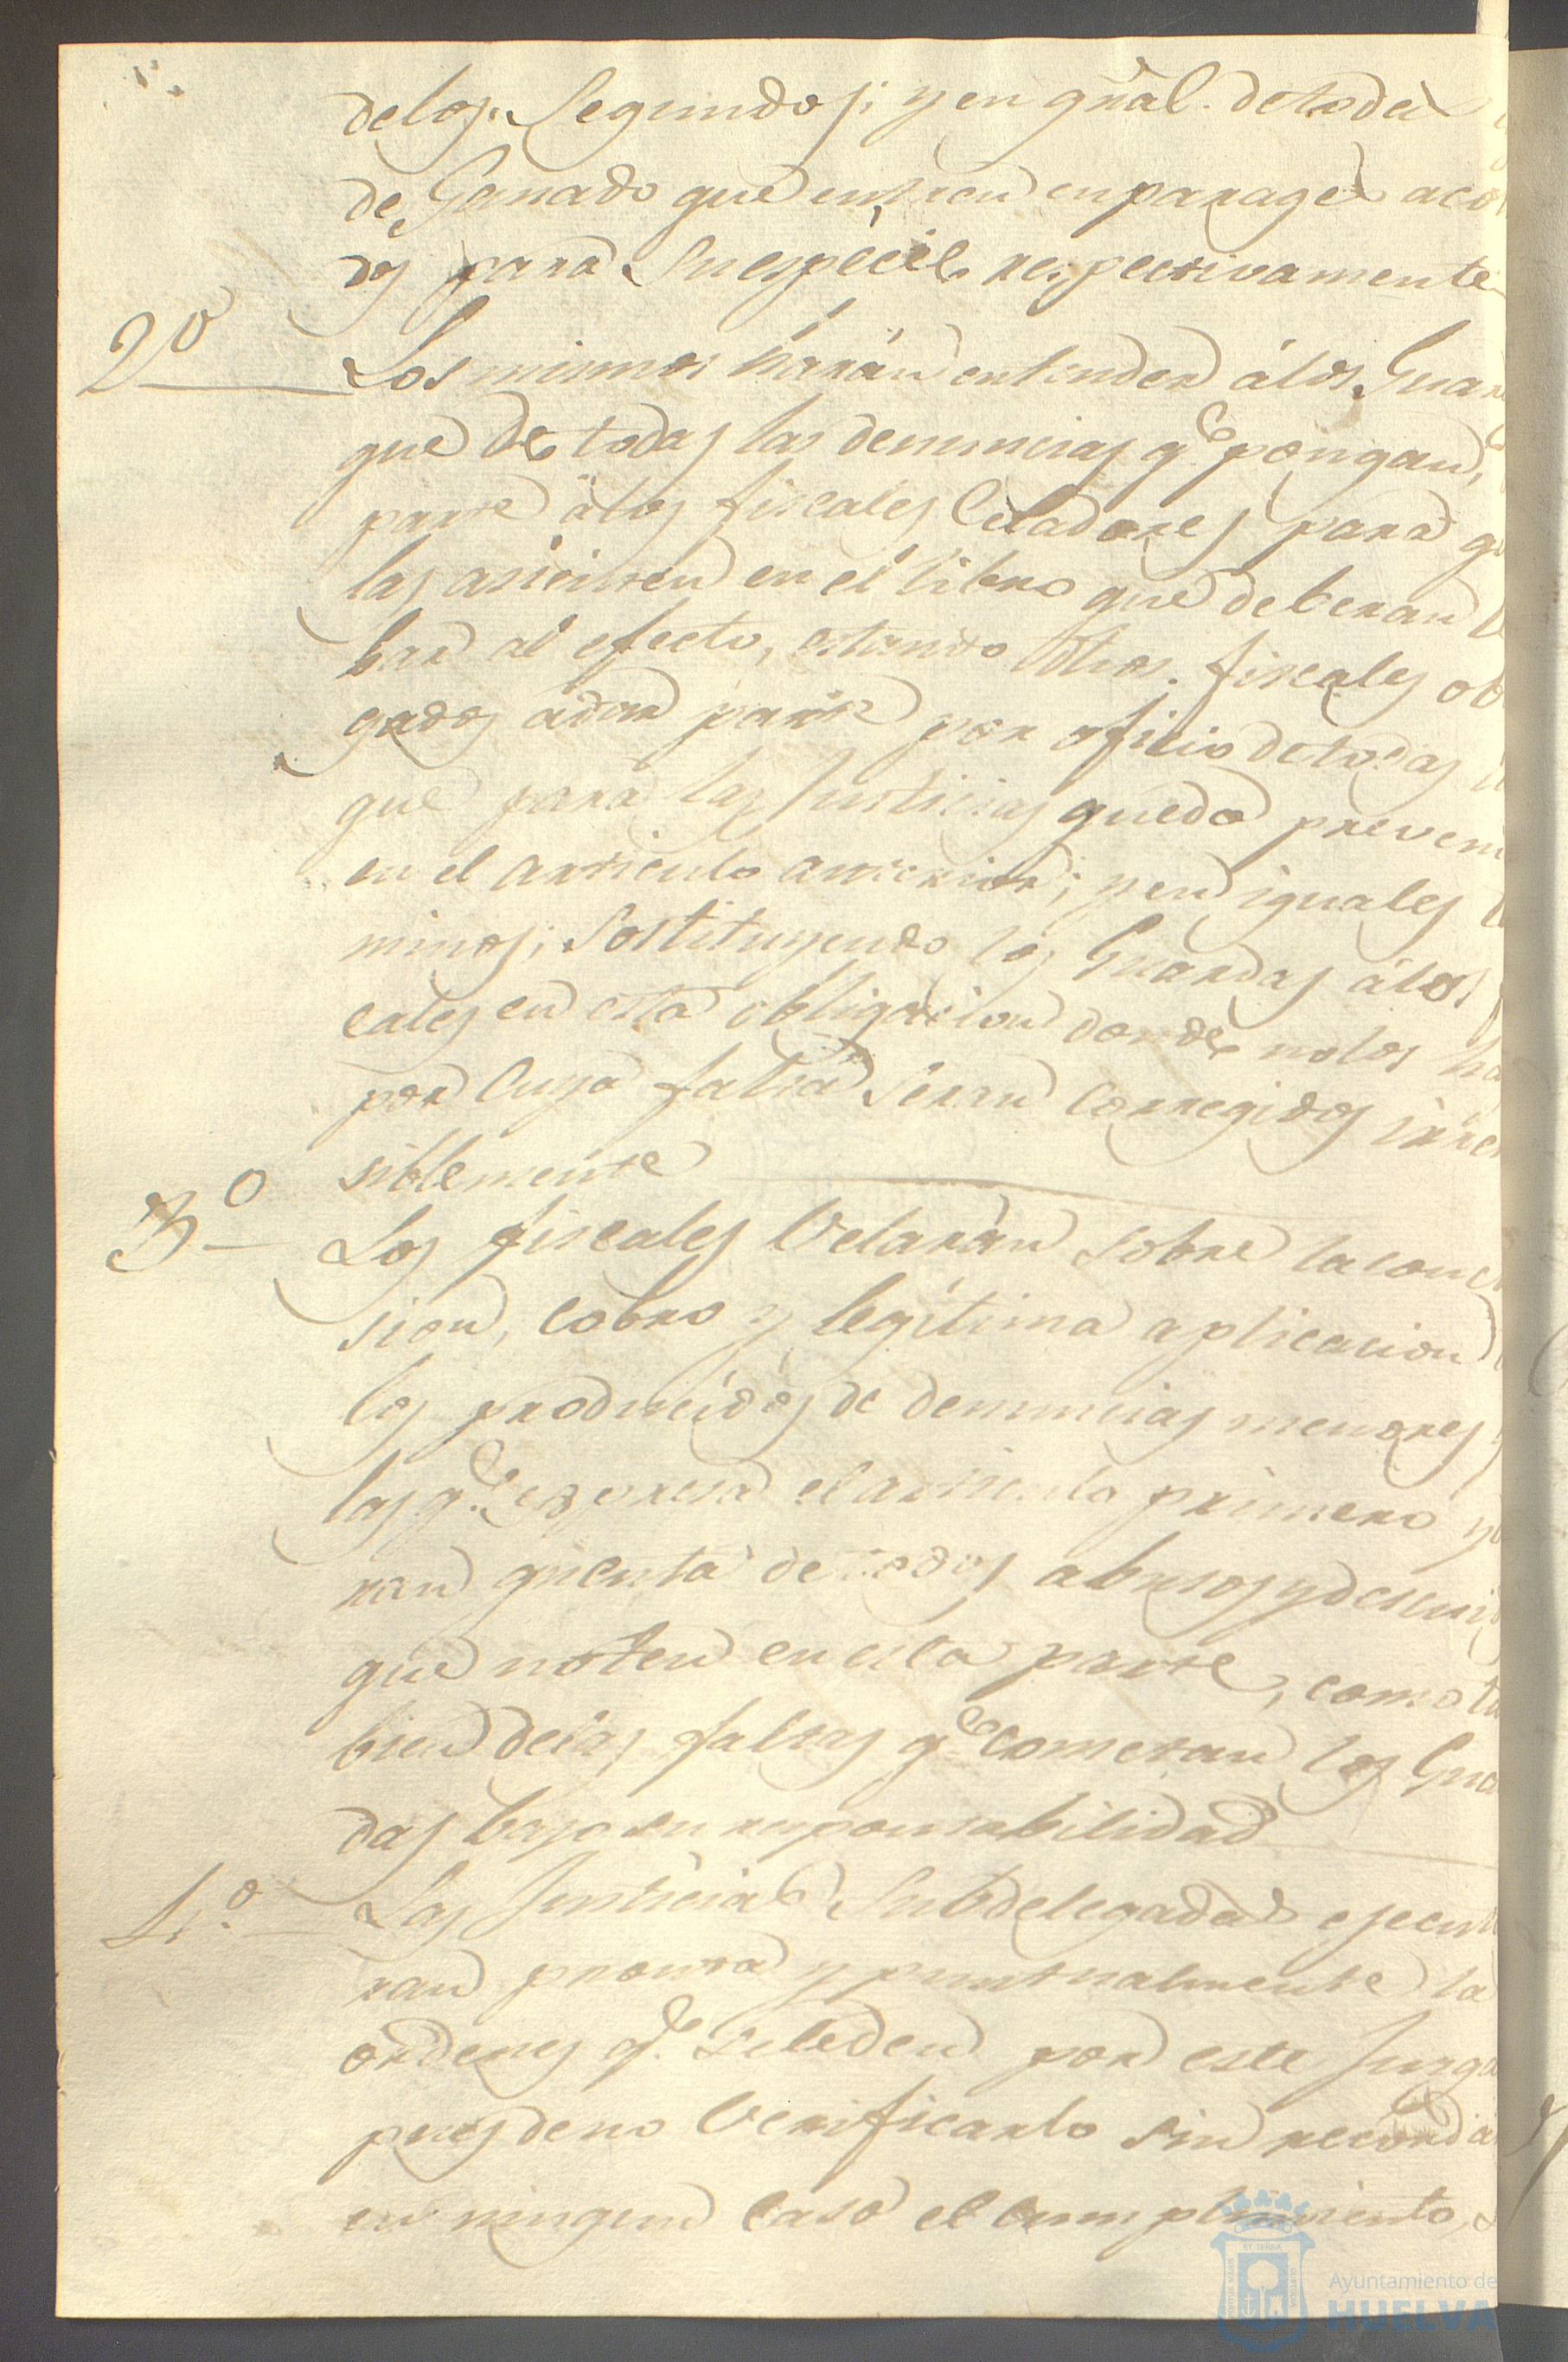 delos Segundos; y en gñal. de toda
de Ganado que entren en parages aco
dos para su especie respectivamente
2º Los mismos harán entender á los Guar
que de todas las denuncias qe. pongan,
parte á los fiscales Celadores para q
las asienten en el libro que deberan
bar al efecto, estando dhos. fiscales ob
gados á dar parte por oficio de todas
que para las Justicias queda preveni
en el articulo anterior; y en iguales
minos; sostituyendo los Guardas á los
cales en esta obligacion donde no los ha
por cuya falta seran corregidos irre
siblemente
3º Los fiscales Velarán sobre la con
sion, cobro y legítima aplicacion
los producidos de denuncias menores
las qe. expresa el articulo primero y
ran quenta de todos abusos y descui
que noten en esta parte, como ta
bien de las faltas qe cometan los Gua
das bajo su responsabilidad
4º. Las Justicias Subdelegadas ejecut
ran pronta y puntualmente la
ordenes qe. se le den por este Juzga
pues de no Verificarlo sin recorda
en ningun caso el cumplimiento,
Ayuntamiento de
HUELVA